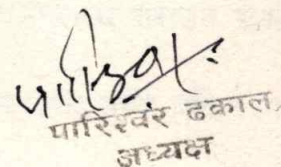 पारिश्वर ढकाल
अध्यक्ष